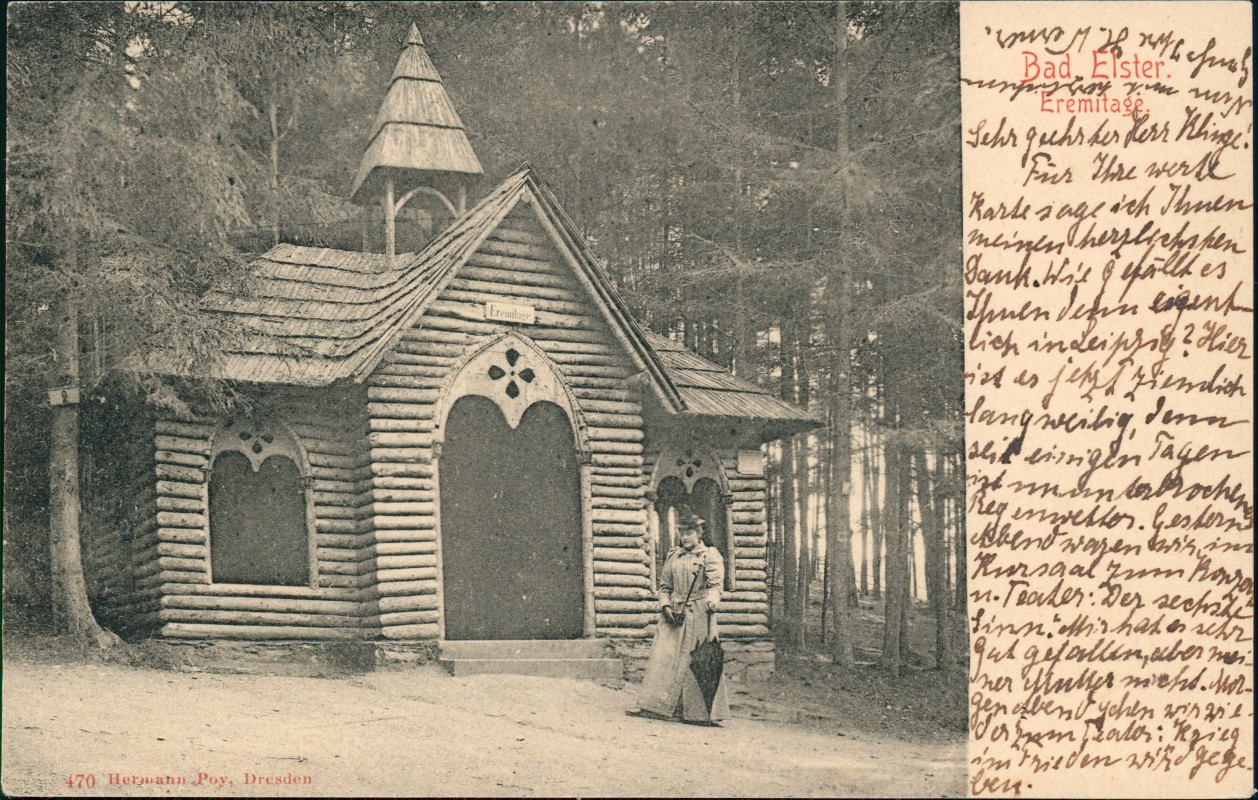 Bad Elster.
Eremitage.
Sehr geehrter Herr Klinge!
Für Ihre werte
Karte sage ich Ihnen
meinen herzlichsten
Dank. Wie gefällt es
Ihnen denn eigent-
lich in Leipzig? Hier
ist es jetzt ziemlich
langweilig, denn
seit einigen Tagen
ist ununterbrochen
Regenwetter. Gestern
Abend waren wir im
Kursaal zum
u. Teater: Der sechste
Sinn. Mir hat es sehr
gut gefallen, aber mei-
ner Mutter nicht. Mor-
gen abend gehen wir wie-
der zum Teater: Krieg
im Frieden wird gege-
ben.
Eremitage
470 Hermann Poy, Dresden